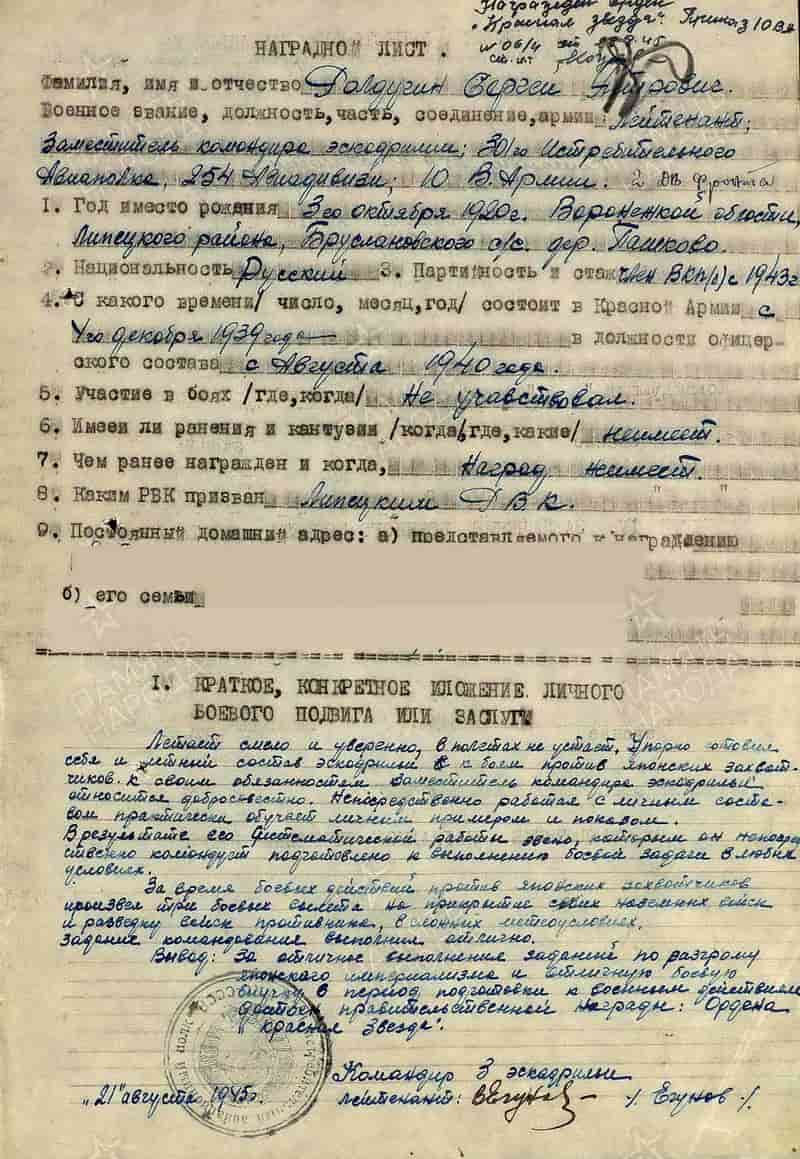 Награжден орден
"Красная звезда". Приказ 10 ВА
НАГРАДНОЙ ЛИСТ.
Фамилия, имя и отчество Долдугин Сергей Петрович.
Военное звание, должность, часть, соединение, армии Лейтенант;
Заместитель командира эскадрилии; 301го Истребительного
Авиаполка, 254 Авиадивизи; 10 В. Армии. 2 ДВ фронта
1. Год иместо рождения 3го октября 1920г. Воронежкой области,
Липецкого района, Бруслановского с/с. дер. Пашково.
2. Национальность Русский 3. Партийность и стаж член ВКП(б) с 1943г
4. С какого времени/ число, месяц, год/ состоит в Красной Армии с
4го декабря 1939 года в должности офицер-
ского состава с Августа 1940 года.
5. Участие в боях /где, когда/ Не учавствовал.
6. Имеен ли ранения и кантузии /когда, где, какие/ неимеет.
7. Чем ранее награжден и когда, Наград неимеет.
8. Каким РВК призван Липецким РВК.
9. Постоянный домашний адрес: а) представляемого к награждению
б) его семьи
1. КРАТКОЕ, КОНКРЕТНОЕ ИЛОЖЕНИЕ ЛИЧНОГО
БОЕВОГО ПОДВИГА ИЛИ ЗАСЛУГИ
Летает смело и уверенно, в полетах не устает. Упорно готовил
себя и летный состав эскадрильи к боям против японских захват-
чиков. К своим обязанностям заместитель командира эскадрильи
относится добросвестно. Непосредственно работая с личным соста-
вом практически обучает личным примером и показом.
В результате его систематической работы звено, которым он непосред
ственно командует подготовлено к выполнению боевой задачи в любых
условиях.
За время боевых действий против японских захватчиков
произвел три боевых вылета на прикрытие своих наземных войск
и разведку войск противника, в сложных метеоусловиях.
Задание командования выполнил отлично.
Вывод: За отличное выполнения заданий по разгрому
японского империализма и отличную боевую
выучку в период подготовки к военным действиям
достоен правительственной награды: Ордена
"Красная Звезда".
Командир 3 эскадрильи
"21" августа 1945г. лейтенант: /Егунов/.